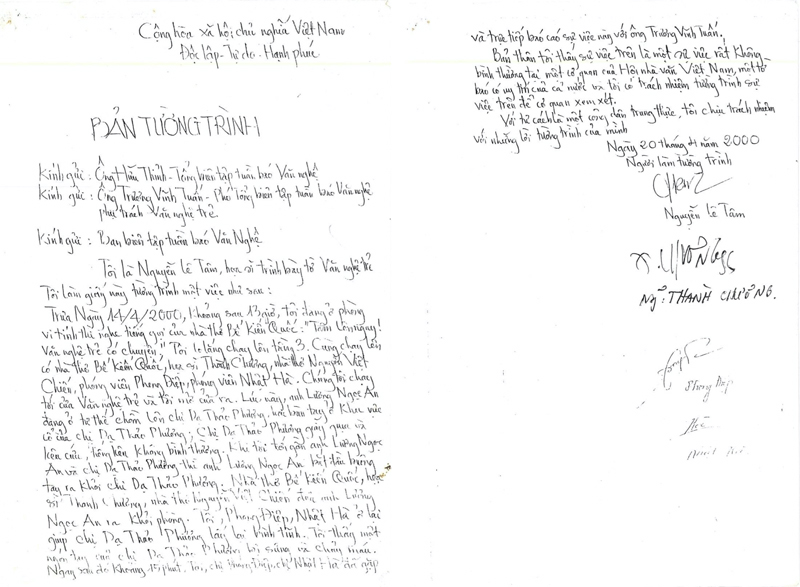 Cộng hòa xã hội chủ nghĩa Việt Nam
Độc lập - Tự do - Hạnh phúc
BẢN TƯỜNG TRÌNH
Kính gửi: Ông Hữu Thỉnh - Tổng biên tập tuần báo Văn nghệ
Kính gửi: Ông Trương Vĩnh Tuấn - Phó Tổng biên tập tuần báo Văn nghệ
phụ trách Văn nghệ trẻ.
Kính gửi: Ban biên tập tuần báo Văn Nghệ
Tôi là Nguyễn Lê Tâm, họa sĩ trình bày tờ Văn nghệ trẻ
Tôi làm giấy này tường trình một việc như sau:
Trưa Ngày 14/4/2000, khoảng sau 13 giờ, tôi đang ở phòng
vi tính thì nghe tiếng gọi của nhà thơ Bế Kiến Quốc: "Tâm lên ngay!
Văn nghệ trẻ có chuyện". Tôi lo lắng chạy lên tầng 3. Cùng chạy lên
có nhà thơ Bế Kiến Quốc, họa sĩ Thành Chương, nhà thơ Nguyễn Việt
Chiến, phóng viên Phong Điệp, phóng viên Nhật Hà. Chúng tôi chạy
tới cửa Văn nghệ trẻ và tôi mở cửa ra. Lúc này, anh Lương Ngọc An
đang ở tư thế chồm lên chị Dạ Thảo Phương, hai bàn tay ở khu vực
cổ của chị Dạ Thảo Phương; Chị Dạ Thảo Phương giãy giụa và
kêu cứu. Tiếng kêu không bình thường. Khi tôi tới gần anh Lương Ngọc
An và chị Dạ Thảo Phương thì anh Lương Ngọc An bắt đầu buông
tay ra khỏi chị Dạ Thảo Phương. Nhà thơ Bế Kiến Quốc, họa
sĩ Thành Chương, nhà thơ Nguyễn Việt Chiến đưa anh Lương
Ngọc An ra khỏi phòng. Tôi, Phong Điệp, Nhật Hà ở lại
giúp chị Dạ Thảo Phương lấy lại bình tĩnh. Tôi thấy một
ngón tay của chị Dạ Thảo Phương bị sưng và chảy máu.
Ngay sau đó khoảng 15 phút. Tôi, chị Phong Điệp, chị Nhật Hà đã gặp
và trực tiếp báo cáo sự việc này với ông Trương Vĩnh Tuấn.
Bản thân tôi thấy sự việc trên là một sự việc rất không
bình thường tại một cơ quan của Hội nhà văn Việt Nam, một tờ
báo có uy tín của cả nước và tôi có trách nhiệm tường trình sự
việc trên để cơ quan xem xét.
Với tư cách là một công dân trung thực, tôi chịu trách nhiệm
với những lời tường trình của mình
Ngày 20 tháng 4 năm 2000
Người làm tường trình
Nguyễn Lê Tâm
NG: THÀNH CHƯƠNG.
Phong Điệp